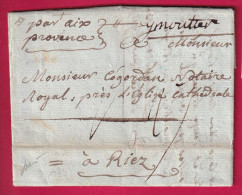 par aix
provence
ymoutier
a Monsieur
Monsieur Cogordan Notaire
Royal, près l'Eglise Cathedrale
= à Riez